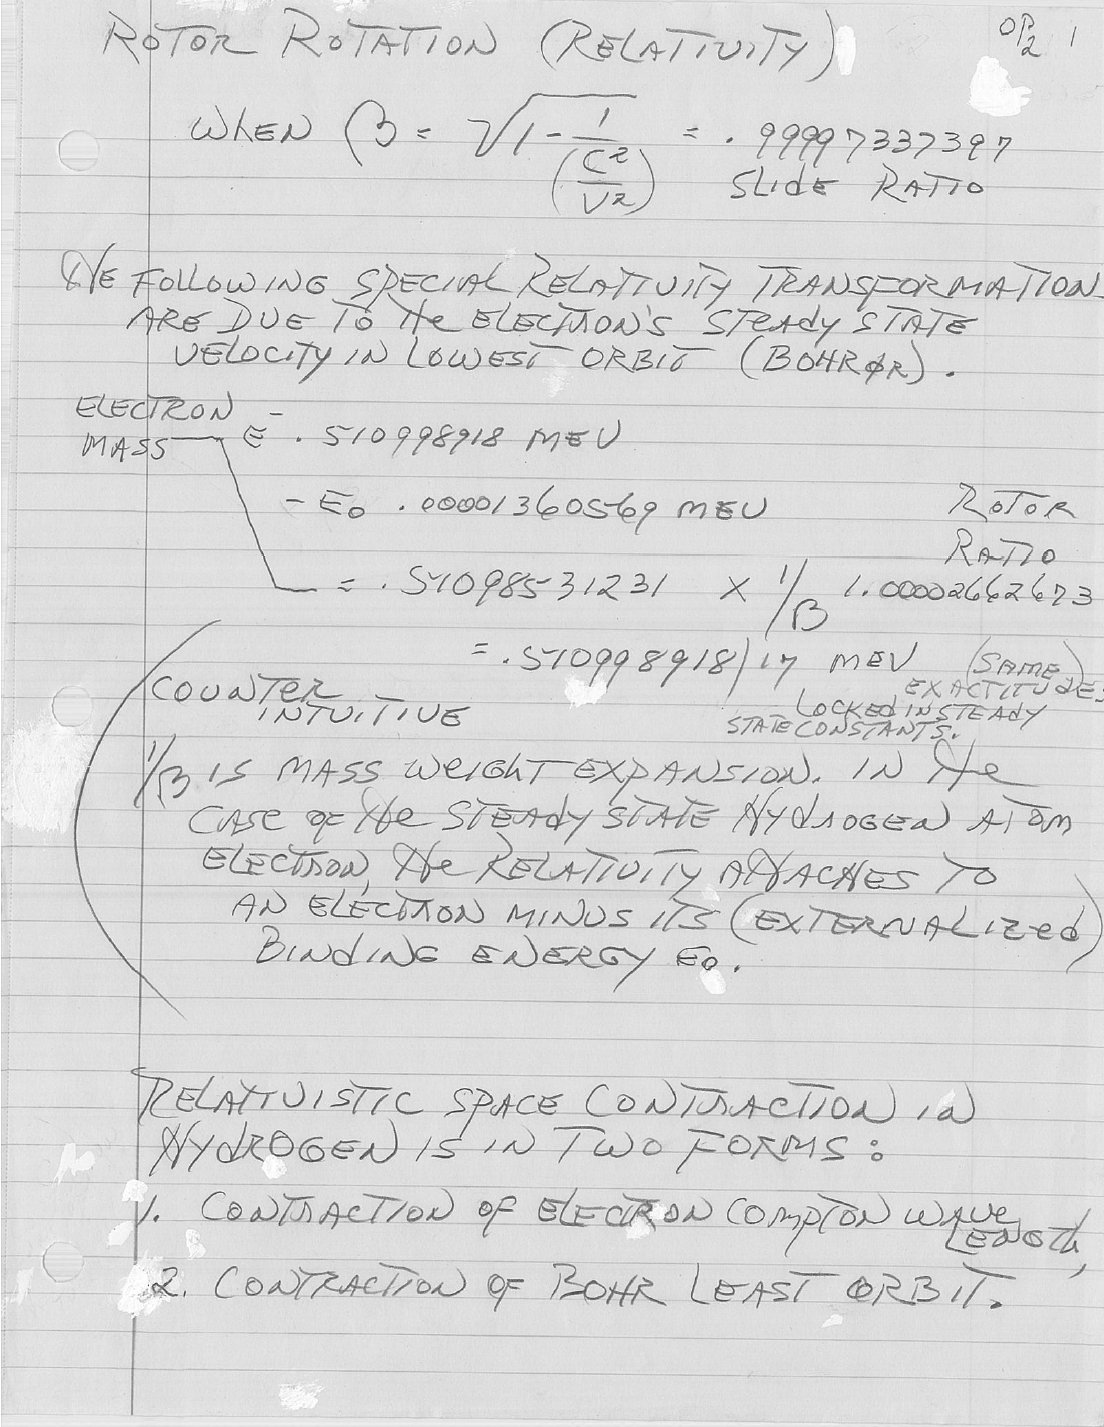 ROTOR ROTATION (RELATIVITY) OP2 1
WHEN β = √1 - 1/(C²/V²) = .99997337397
SLIDE RATIO
THE FOLLOWING SPECIAL RELATIVITY TRANSFORMATIONS
ARE DUE TO THE ELECTRON'S STEADY STATE
VELOCITY IN LOWEST ORBIT (BOHR
ELECTRON
MASS E- .510998918 MEV
- E0 .00001360569 MEV
ROTOR
RATIO
= .51098531231 X 1/β 1.00002662673
= .510998918|17 MEV (SAME)
EXACTITUDES
LOCKED IN STEADY
STATE CONSTANTS.
COUNTER
INTUITIVE
1/β IS MASS WEIGHT EXPANSION. IN THE
CASE OF THE STEADY STATE HYDROGEN ATOM
ELECTRON, THE RELATIVITY ATTACHES TO
AN ELECTRON MINUS ITS (EXTERNALIZED)
BINDING ENERGY E0.
RELATIVISTIC SPACE CONTRACTION IN
HYDROGEN IS IN TWO FORMS:
1. CONTRACTION OF ELECTRON COMPTON WAVE
LENGTH,
2. CONTRACTION OF BOHR LEAST ORBIT.